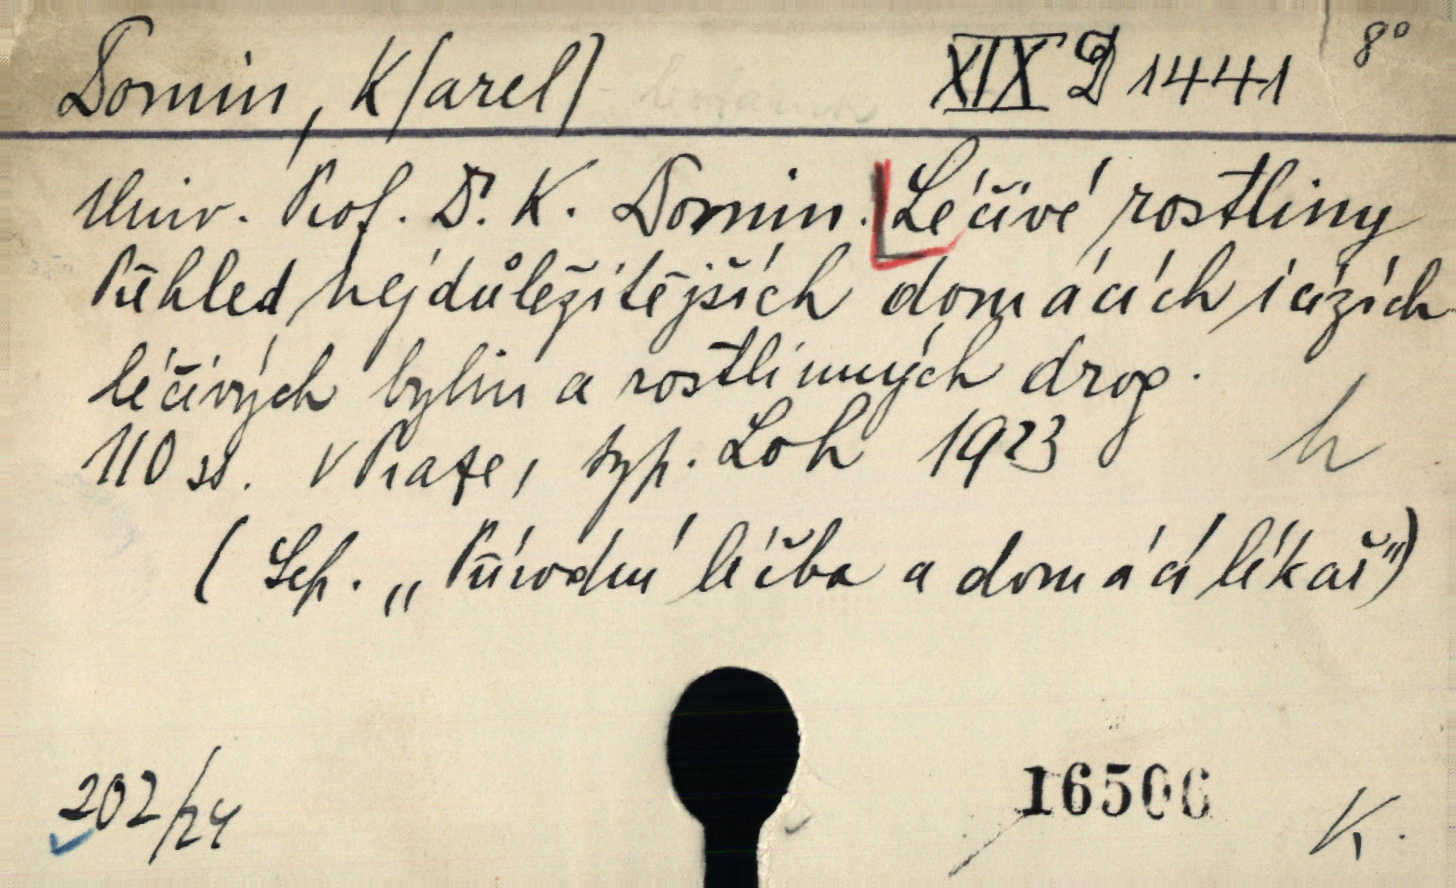 Domin, K[arel] XIX D 1441 8°
Univ. Prof. Dr. K. Domin. Léčivé rostliny
Přehled nejdůležitějších domácích i cizích
léčivých bylin a rostlinných drog.
110 ss. V Praze, typ. Loh 1923 h
( Sep. „Přírodní léčba a domácí lékař")
202/24 16506 K.